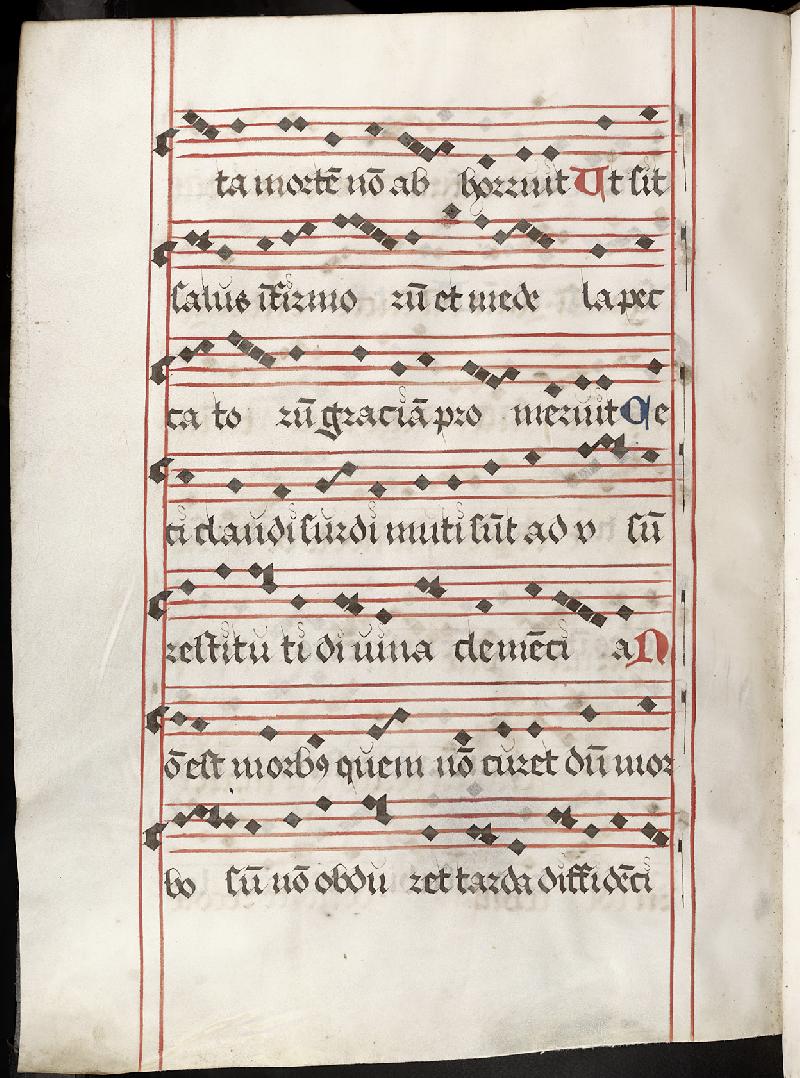 ta mortē nō ab horruit Ut sit
salus īfirmo rū et mede la pec
ca to rū graciā pro meruit Ce
ci claudi surdi muti sūt ad v sū
restitu ti di uina clemēci a N
ō est morbꝯ quem nō curet dū mor
bo sū nō obdu ret tarda diffidēci